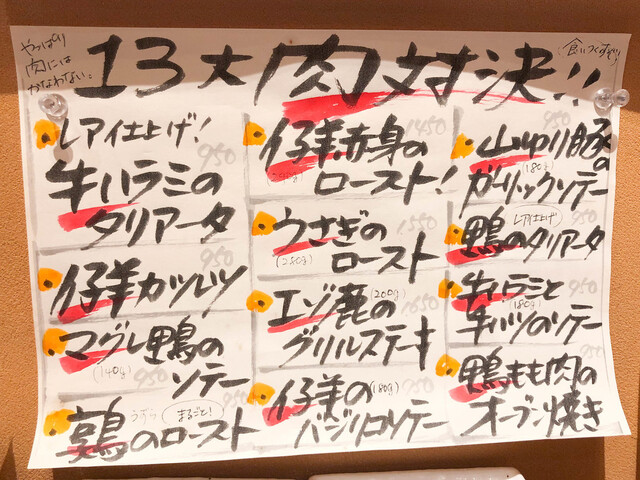 やっぱり
肉には
かなわない。
13大肉対決!!
レアイ仕上げ!
牛ハラミの
タリアータ
950
仔羊カツレツ
950
マグレ鴨の
ソテー
(140g)
950
うずら
まるごと!
鶉のロースト
950
仔羊赤身の
ロースト!
1450
うさぎの
ロースト
(250g)
1550
エゾ鹿の
(200g)
グリルステーキ
1650
仔羊の
(180g)
バジリコソテー
950
山ゆり豚の
(180g)
ガーリックソテー
950
レアイ仕上げ
鴨のタリアータ
950
牛ハラミと
(180g)
牛ハツのソテー
950
鴨もも肉の
オーブン焼き
950